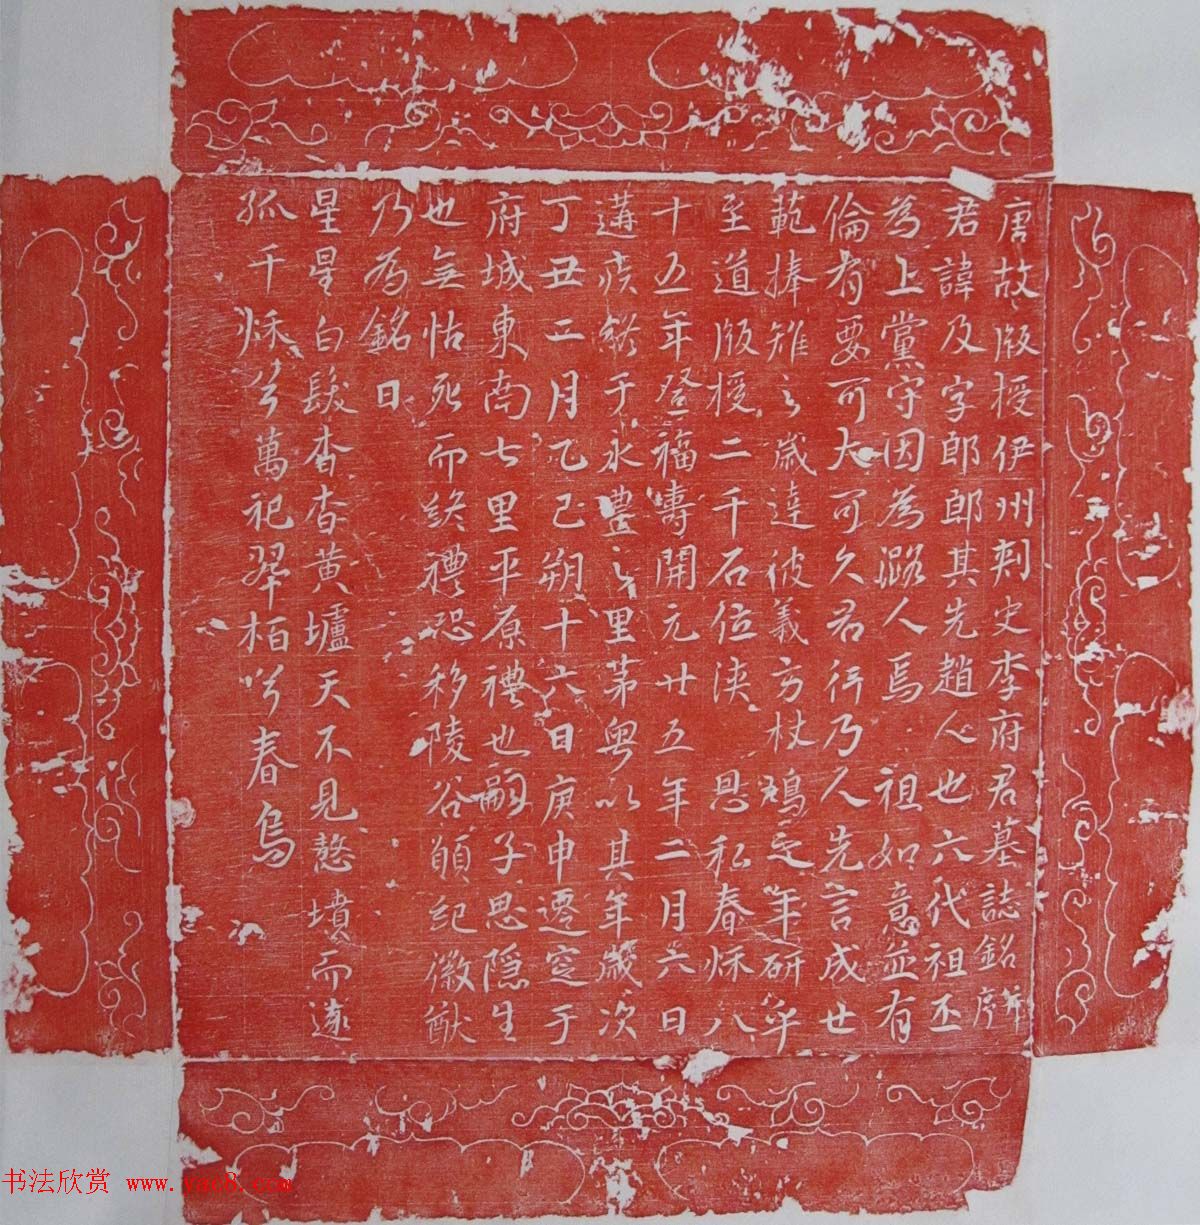 唐故版授伊州刾史李府君墓誌銘并序
君諱及字郎郎其先趙人也六代祖丕
為上黨守因為潞人焉 祖如意並有
倫有要可大可久君行乃人先言成世
範捧雉之歲達彼義方杖鳩之年研乎
至道版授二千石位浹 恩私春秋八
十五年登福壽開元廿五年二月六日
遘疾終于永豐之里苐粤以其年歲次
丁丑二月乙巳朔十六日庚申遷窆于
府城東南七里平原禮也嗣子思隱生
也無怙死而終禮恐移陵谷願紀徽猷
乃為銘曰
星星白髮杳杳黄壚天不見憗墳而遂
孤千秋兮萬祀翠栢兮春烏
书法欣赏 www.yac8.com